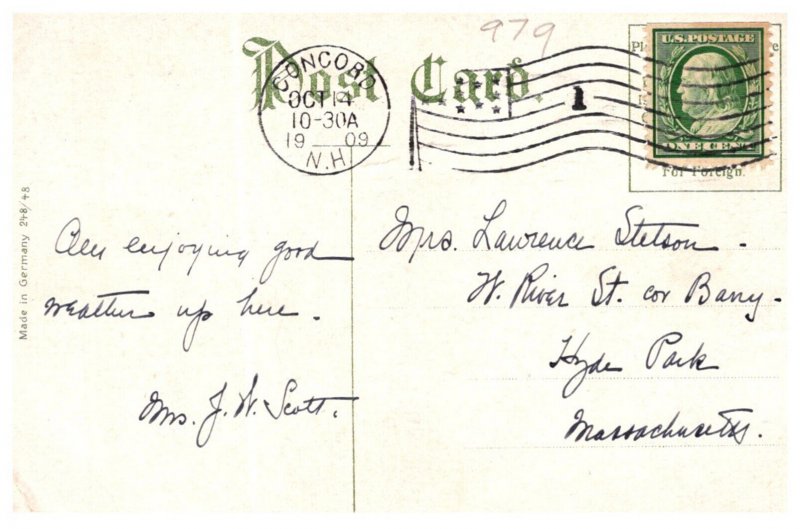 979
Post Card.
CONCORD
OCT 14
10-30A
1909
N.H.
1
U.S. POSTAGE
ONE CENT
For Foreign
Made in Germany 248/48
Am enjoying good
weather up here.
Mrs. J. W. Scott.
Mrs. Lawrence Stetson.
W. River St. cor Barry.
Hyde Park
Massachusetts.